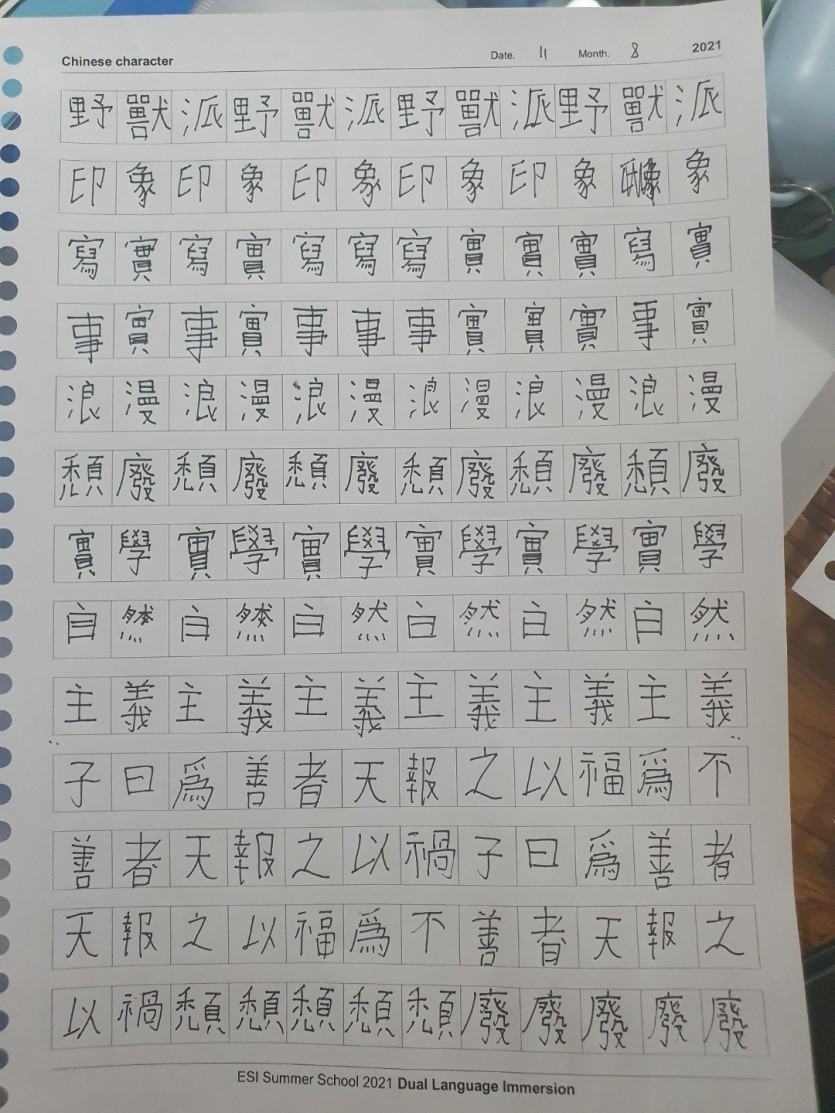 Chinese character Date. 11 Month. 8 2021
野獸派野獸派野獸派野獸派
印象印象印象印象印象象
寫實寫實寫寫寫實實實寫實
事實事實事事事實實實事實
浪漫浪漫浪漫浪漫浪漫浪漫
頹廢頹廢頹廢頹廢頹廢頹廢
實學實學實學實學實學實學
自然自然自然自然自然自然
主義主義主義主義主義主義
子曰爲善者天報之以福爲不
善者天報之以禍子曰爲善者
天報之以福爲不善者天報之
以禍頹頹頹頹頹廢廢廢廢廢
ESI Summer School 2021 Dual Language Immersion